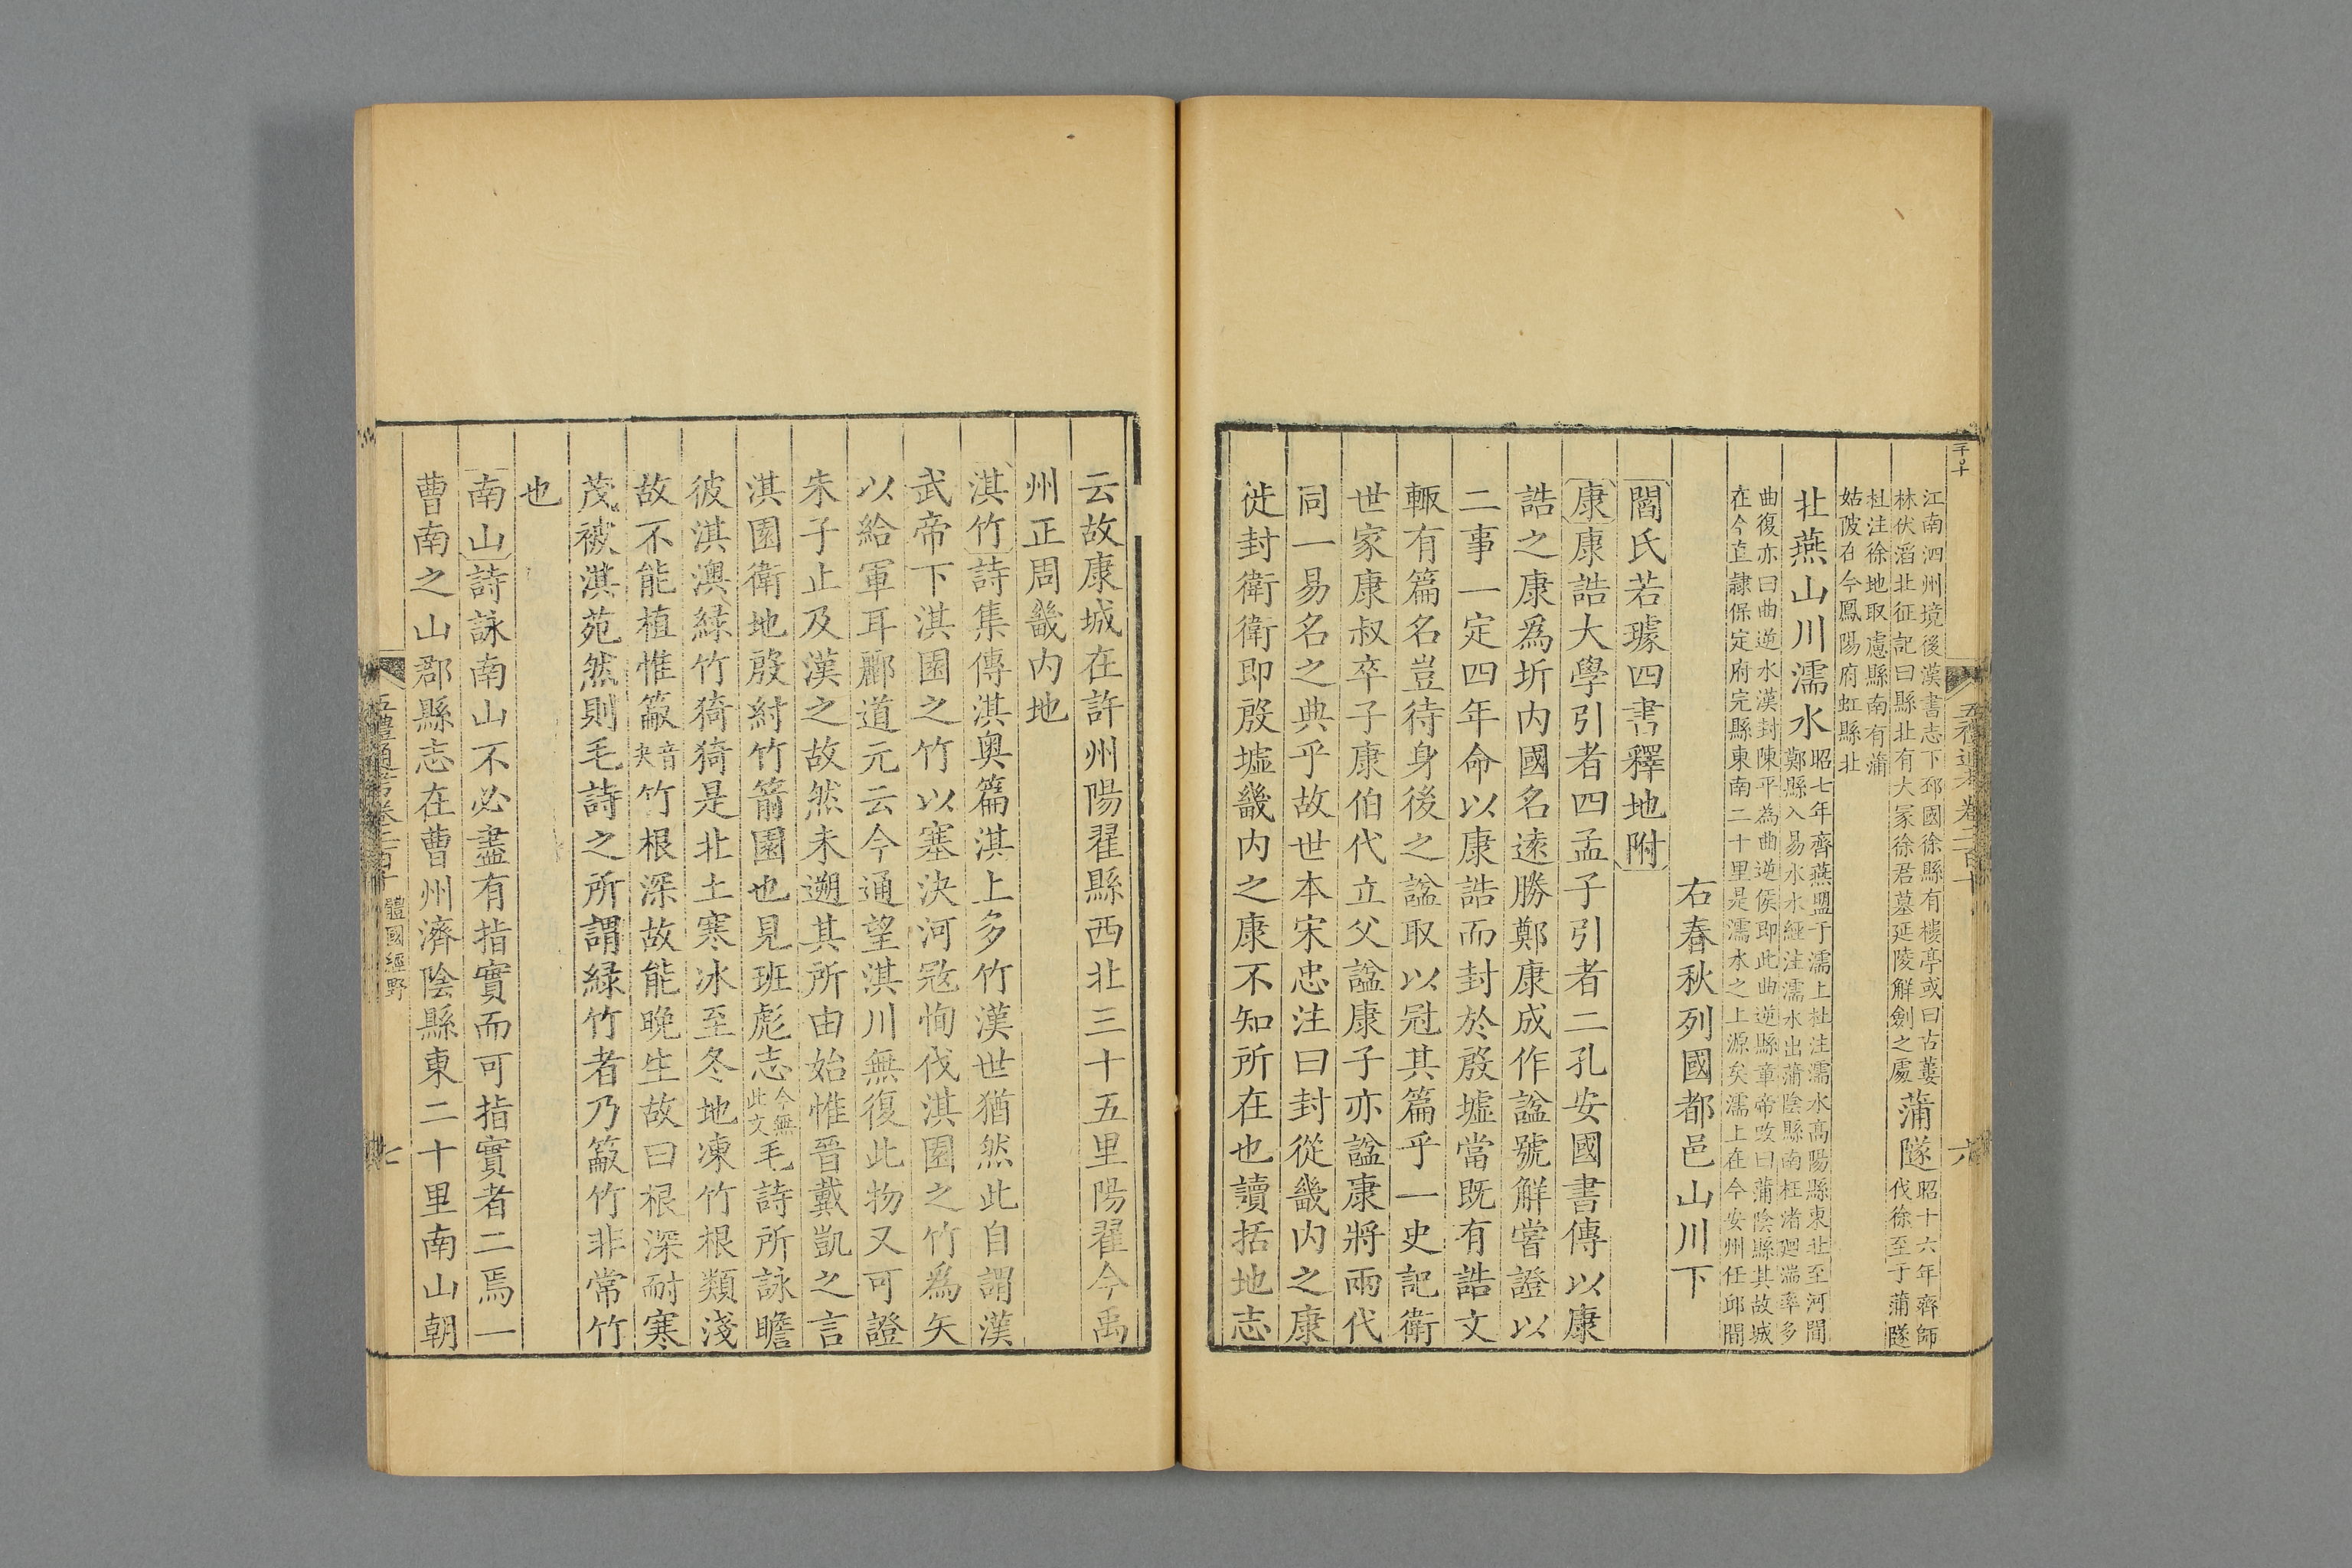 江南泗州境後漢書志下邳國徐縣有樓亭或曰古蔞
林伏滔北征記曰縣北有大冢徐君墓延陵解劍之處
蒲隧
昭十六年齊師
伐徐至于蒲隧
杜注徐地取慮縣南有蒲
姑陂在今鳳陽府虹縣北
北燕山川濡水
昭七年齊燕盟于濡上杜注濡水高陽縣東北至河間
鄭縣入易水水經注濡水出蒲陰縣南枉渚迴湍率多
曲復亦曰曲逆水漢封陳平為曲逆侯即此曲逆縣章帝改曰蒲陰縣其故城
在今直隸保定府完縣東南二十里是濡水之上源矣濡上在今安州任邱間
右春秋列國都邑山川下
閻氏若璩四書釋地附
康康誥大學引者四孟子引者二孔安國書傳以康
誥之康爲圻内國名逺勝鄭康成作諡號解嘗證以
二事一定四年命以康誥而封於殷墟當既有誥文
輒有篇名豈待身後之諡取以冠其篇乎一史記衛
世家康叔卒子康伯代立父諡康子亦諡康將兩代
同一易名之典乎故世本宋忠注曰封從畿内之康
徙封衛衛即殷墟畿内之康不知所在也讀括地志
云故康城在許州陽翟縣西北三十五里陽翟今禹
州正周畿内地
淇竹詩集傳淇奥篇淇上多竹漢世猶然此自謂漢
武帝下淇園之竹以塞決河㓂恂伐淇園之竹爲矢
以給軍耳酈道元云今通望淇川無復此物又可證
朱子止及漢之故然未遡其所由始惟晉戴凱之言
淇園衛地殷紂竹箭園也見班彪志
今無
此文
毛詩所詠瞻
彼淇澳綠竹猗猗是北土寒冰至冬地凍竹根類淺
故不能植惟𥳽
音
夾
竹根深故能晚生故曰根深耐寒
茂被淇苑然則毛詩之所謂綠竹者乃𥳽竹非常竹
也
南山詩詠南山不必盡有指實而可指實者二焉一
曹南之山郡縣志在曹州濟陰縣東二十里南山朝
五禮通考卷二百十
體國經野
七